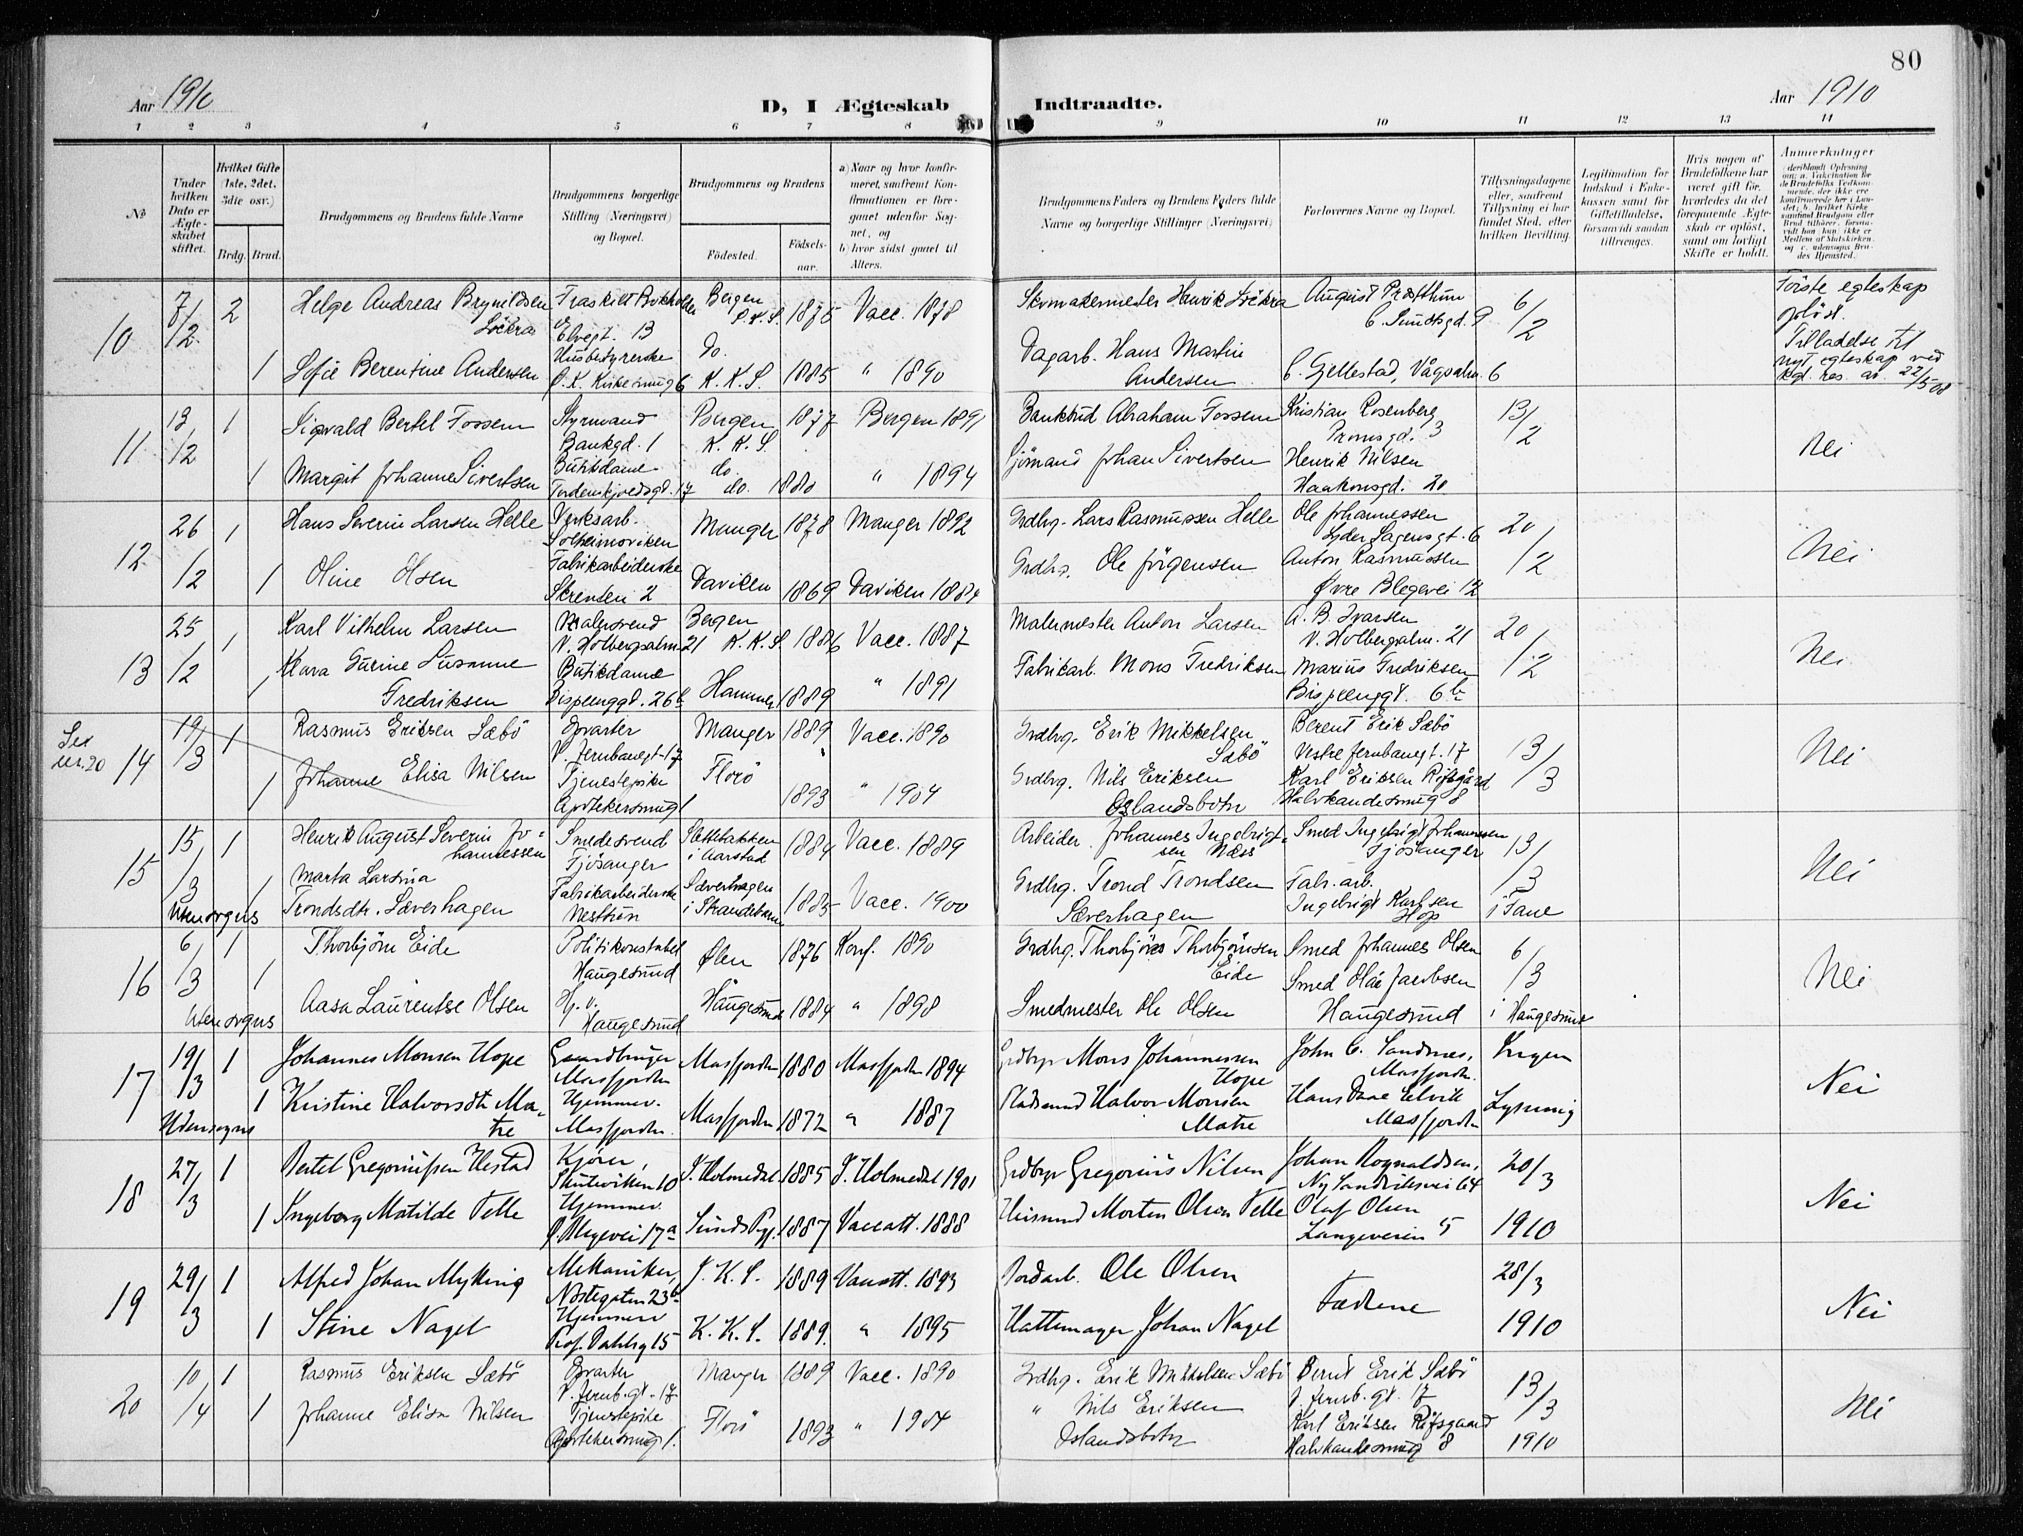 80
Aar 1910
D, I Ægteskab Indtraadte.
Aar 1910
1 2 3 4 5 6 7 8 9 10 11 12 13 14
No
Under hvilken Dato er Ægteskabet stiftet.
Hvilket Gifte (1ste, 2det, 3die osv.)
Brdg. Brud.
Brudgommens og Brudens fulde Navne
Brudgommens borgerlige Stilling (Næringsvei) og Bopæl.
Brudgommens og Brudens
Fødested.
Fødselsaar.
a) Naar og hvor konfirmeret, saafremt Konfirmationen er foregaaet udenfor Sognet, og
b) hvor sidst gaaet til Alters.
Brudgommens Faders og Brudens Faders fulde Navne og borgerlige Stillinger (Næringsvei)
Forlovernes Navne og Bopæl.
Tillysningsdagene eller, saafremt Tillysning ei har fundet Sted, efter hvilken Bevilling.
Legitimation for Indskud i Enkekassen samt for Giftetilladelse, forsaavidt saadan tiltrænges.
Hvis nogen af Brudefolkene har været gift før, hvorledes da det foregaaende Ægteskab er opløst, samt om lovligt Skifte er holdt.
Anmerkninger
10
7/2 2
Helge Andreas Brynildsen Lökra
Elvegt. 13
Bergen
1875 Vacc. 1878
Skomakermester Henrik Lökra
6/2
Første egteskap opløst.
Tilladelse til nyt egteskap ved kgl. res. av 22/5-08
1
Sofie Berentine Andersen
Husbestyrerske
Do. K. K. S. 1885 " 1890
Dagarb. Hans Martin Andersen
C. Gjellestad, Vågsalm. 6
11
13/2 1
Sigvald Bertel Fossem
Styrmand
Bankgd. 1
Bergen K. K. S. 1877 Bergen 1891
Bankbud Abraham Fossem
Kristian Rosenberg
13/2
Nei
1
Margit Johanne Sivertsen
Butikdame
Tordenskjoldsgt. 17
do. do. 1880 " 1894
Sjömand Johan Sivertsen
Henrik Nilsen
Haakonsgd. 20
12
26/2 1
Hans Severin Larsen Helle
Verksarb.
Solheimsviken
Manger 1878 Manger 1892
Grdbrg. Lars Rasmussen Helle
Ole Johannessen
Lyder Sagensgt. 6
20/2
Nei
1
Oline Olsen
Fabrikarbeiderske
Skrenten 2
Daviken 1869 Daviken 1884
Grdbrg. Ole Jörgensen
Anton Rasmussen
Øvre Blegevei 12
13
25/2 1
Karl Vilhelm Larsen
Malersvend
N. Holbergsalm. 21
Bergen K. K. S. 1886 Vacc. 1887
Malermester Anton Larsen
A. B. Ivarsen
N. Holbergsalm. 21
20/2
Nei
1
Klara Gurine Susanne Fredriksen
Butikdame
Bispenggt. 26b
Hammer 1889 " 1891
Fabrikarb. Mons Fredriksen
Marius Fredriksen
Bispenggt. 6b
Se nr. 20
14
19/3 1
Rasmus Eriksen Sæbö
Opvarter
V. Jernbanegt. 17
Manger 1889 Vacc. 1890
Grdbrg. Erik Mikkelsen Sæbö
Berent Erik Sæbö
Vestre Jernbanegt. 17
13/3
Nei
1
Johanne Elisa Nilsen
Tjenestepike
Apotekersmug 1
Florö 1893 " 1904
Grdbrg. Nils Eriksen Oslandsbotn
Karl Eriksen Refsgård
Halvkandesmug 8
15
15/3 1
Henrik August Severin Johannessen
Smedesvend
Fjösanger
Slettebakken i Aarstad 1884 Vacc. 1889
Arbeider Johannes Ingebrigtsen Næss
Smed Ingebrigt Johannessen Fjösanger
13/3
Nei
1
Marta Larsina Trondsdtr. Sæverhagen
Fabrikarbeiderske
Nesttun
Sæverhagen i Strandebarm 1885 Vacc. 1900
Grdbrg. Trond Trondsen Sæverhagen
Fabr. arb. Ingebrigt Karlsen Hop
i Fane
Utensogns
16
6/3 1
Thorbjörn Eide
Politikonstabel
Haugesund
Ølen 1876 Konf. 1890
Grdbrg. Thorbjörn Thorbjörnsen Eide
Smed Johannes Olsen
6/3
Nei
1
Aasa Laurentse Olsen
Hj. v.
Haugesund
Haugesund 1884 " 1898
Smedmester Ole Olsen
Smed Olai Jacobsen
Haugesund
i Haugesund
Utensogns
17
19/3 1
Johannes Monsen Hope
Gaardbruger
Masfjorden
Masfjorden 1880 Masfjorden 1894
Grdbgr Mons Johannessen Hope
John C. Sandnes, Masfjorden
Ingen Lysning
Nei
1
Kristine Halvorsdtr. Matre
Hjemmev.
Masfjorden.
Masfjorden 1872 " 1887
Pladsmand Halvor Monsen Matre
Hans Dane Elvik
Masfjorden
Udensogns
18
27/3 1
Bertel Gregoriussen Hestad
Kjører,
Skuteviken 10
I. Holmedal 1885 I. Holmedal 1901
Grdbgr Gregorius Nilsen
Johan Rognaldsen,
Ny Sandviksvei 64
20/3
1910
Nei
1
Ingeborg Matilde Telle
Hjemmev.
Ø. Blegevei 17a
1887 Vaccatt. 1888
Husmand Morten Olsen Telle
Olaf Olsen
Langeveien 5
19
29/3 1
Alfred Johan Myking
Mekaniker,
Nøstegaten 23b
J. K. S. 1889 Vaccatt. 1893
Jordarb. Ole Olsen
Fædrene
28/3
1910
Nei
1
Stine Nagel
Hjemmev
Prof. Dahlsg 15
K. K. S. 1889. " 1895
Hattemager Johan Nagel
20
10/4 1
Rasmus Eriksen Sæbö
Opvarter
V. Jernb. gt. 17
Manger 1889 Vacc. 1890
Grdbrg. Erik Mikkelsen Sæbö
Bernt Erik Sæbö
V. Jernb. gt. 17
13/3
1910
Nei
1
Johanne Elisa Nilsen
Tjenestepike
Apotekersmug 1.
Florö 1893 " 1904
" Nils Eriksen Oslandsbotn
Karl Eriksen Refsgaard
Halvkandesmug 8